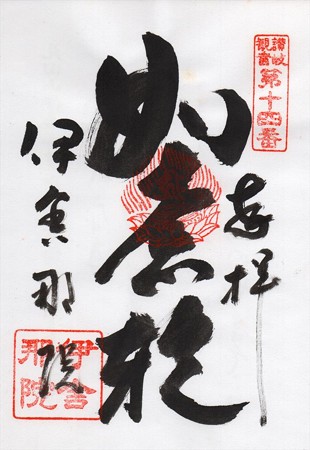 讃岐
観音
第十四番
奉拝
如意輪
伊舎那院
伊舎
那院